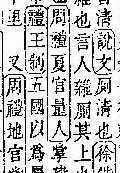 清說文厠清也徐
也言人雜厠其上也
周禮夏官量人掌
禮王制五國以為屬
里 又周禮地官